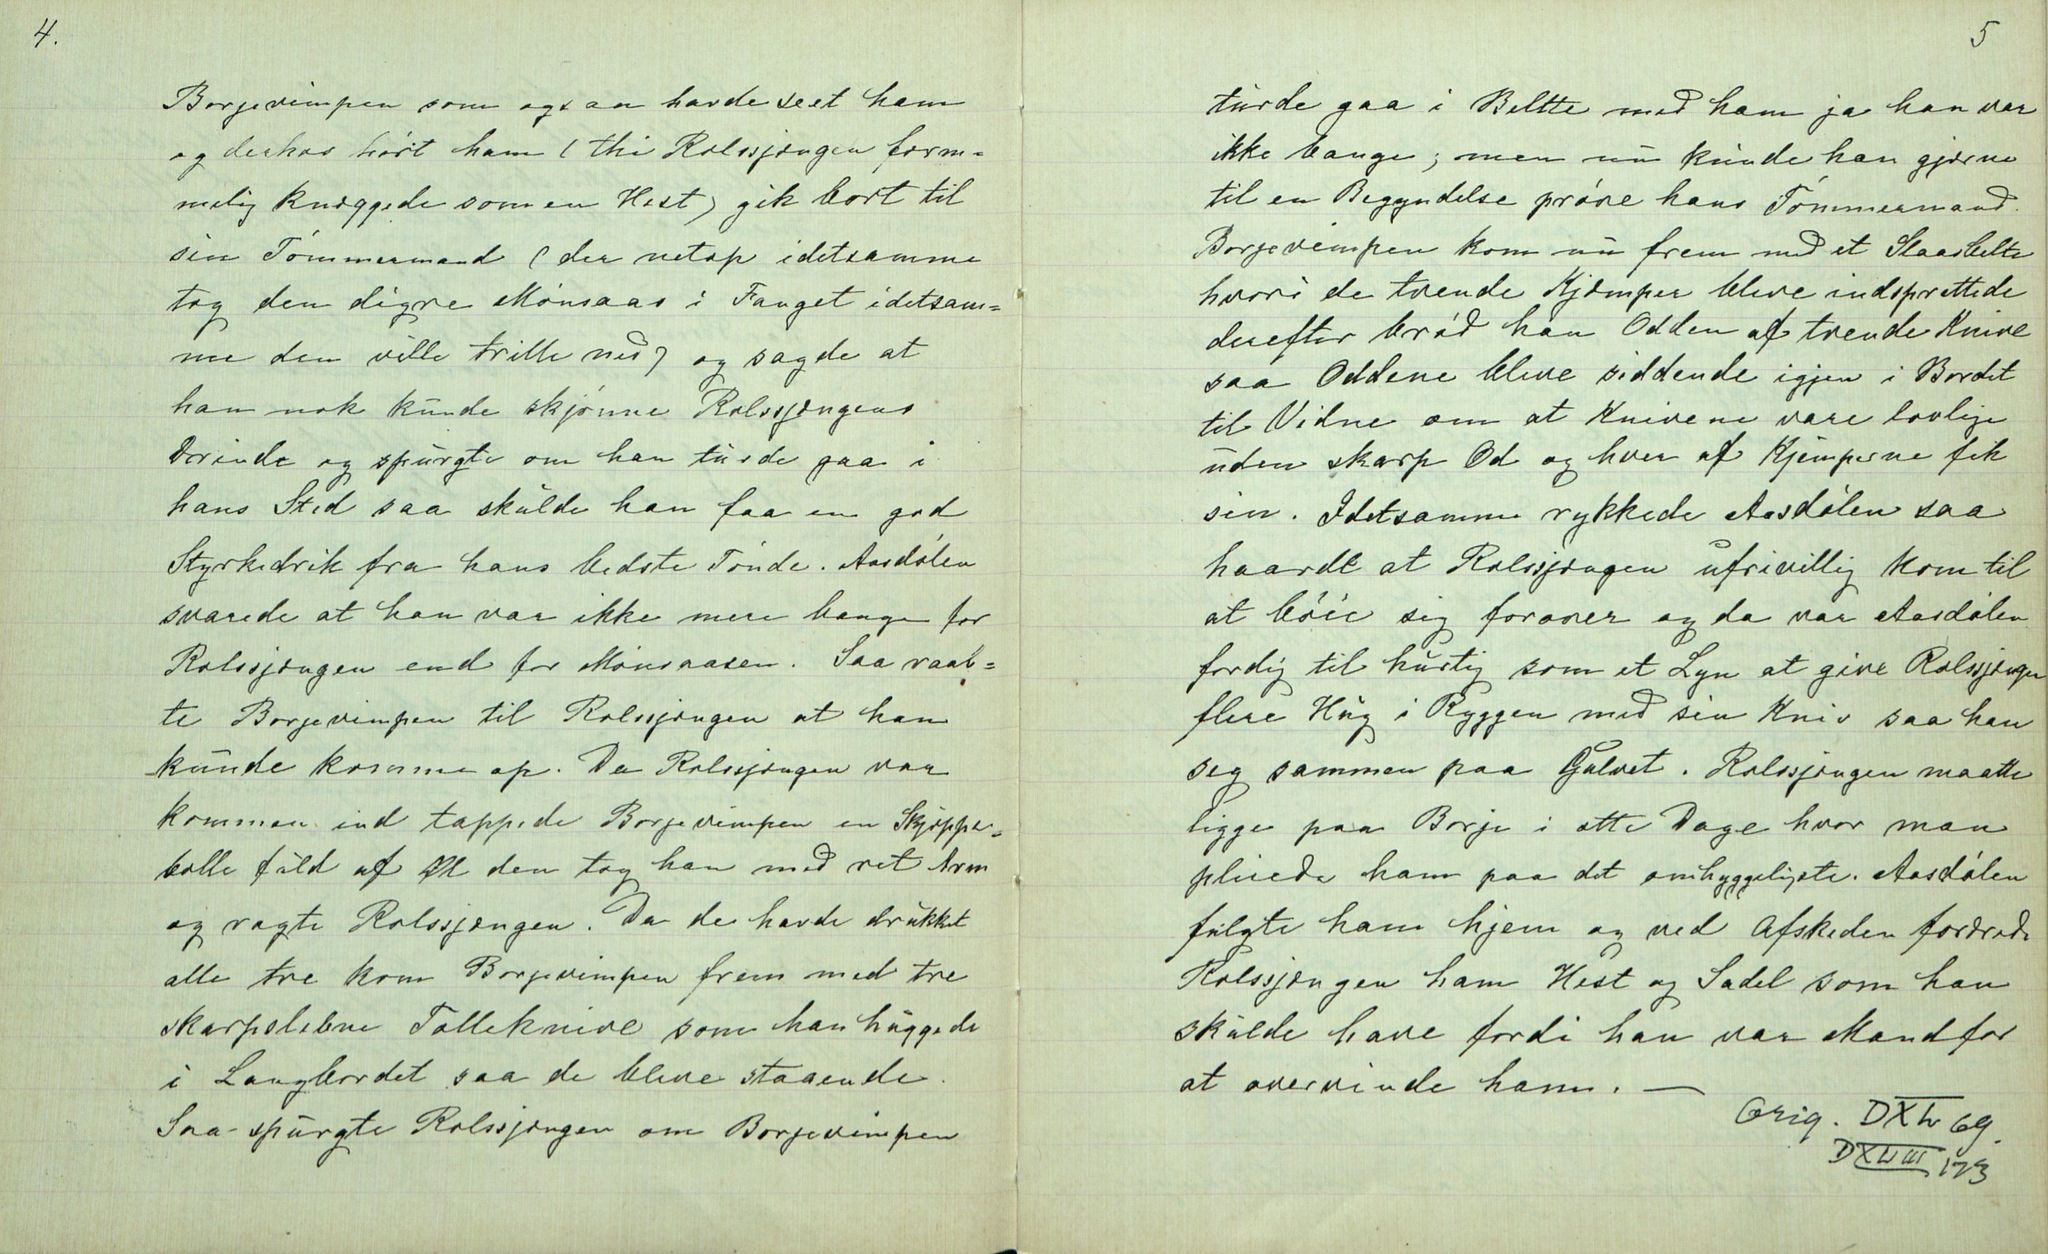 4.
Borjevimpen som ogsaa havde seet ham
og derhos hørt ham (thi Rolssjongen form=
melig knæggede som en Hest) gik bort til
sin Tømmermand (der netop idetsamme
tog den digre Mønsaas i Fanget idetsam=
me den ville trille ned) og sagde at
han nok kunde skjønne Rolssjongens
Ærinde og spurgte om han turde gaa i
hans Sted saa skulde han faa en god
Styrkedrik fra hans bedste Tønde. Aasdølen
svarede at han var ikke mere bange for
Rolssjongen end for Mønsaasen. Saa raab=
te Borjevimpen til Rolssjongen at han
kunde komme op. Da Rolssjongen var
kommen ind tappede Borjevimpen en Skjæppe=
bolle fuld af Øl den tog han med ret Arm
og ragte Rolssjongen. Da de havde drukket
alle tre kom Borjevimpen frem med tre
skarpslebne Tolleknive som han huggede
i Langbordet saa de bleve staaende.
Saa spurgte Rolssjongen om Borjevimpen
5
turde gaa i Beltte med ham ja han var
ikke bange; men nu kunde han gjerne
til en Begyndelse prøve hans Tømmermand.
Borjevimpen kom nu frem med et Staalbelte
hvori de tvende Kjæmper bleve indsprettede
derefter brød han Odden af tvende Knive
saa Oddene bleve siddende igjen i Bordet
til Vidne om at Knivene vare lovlige
uden skarp Od og hver af Kjæmperne fik
sin. Idetsamme rykkede Aasdølen saa
haardt at Rolssjongen ufrivillig kom til
at bøie sig forover og da var Aasdølen
færdig til hurtig som et Lyn at give Rolssjongen
flere Hug i Ryggen med sin Kniv saa han
seg sammen paa Gulvet. Rolssjongen maatte
ligge paa Borje i otte Dage hvor man
pleiede ham paa det omhyggeligste. Aasdølen
fulgte ham hjem og ved Afskeden forærede
Rolssjongen ham Hest og Sadel som han
skulde have fordi han var Mand for
at overvinde ham. —
Orig. DXL 69.
DXLIII 173